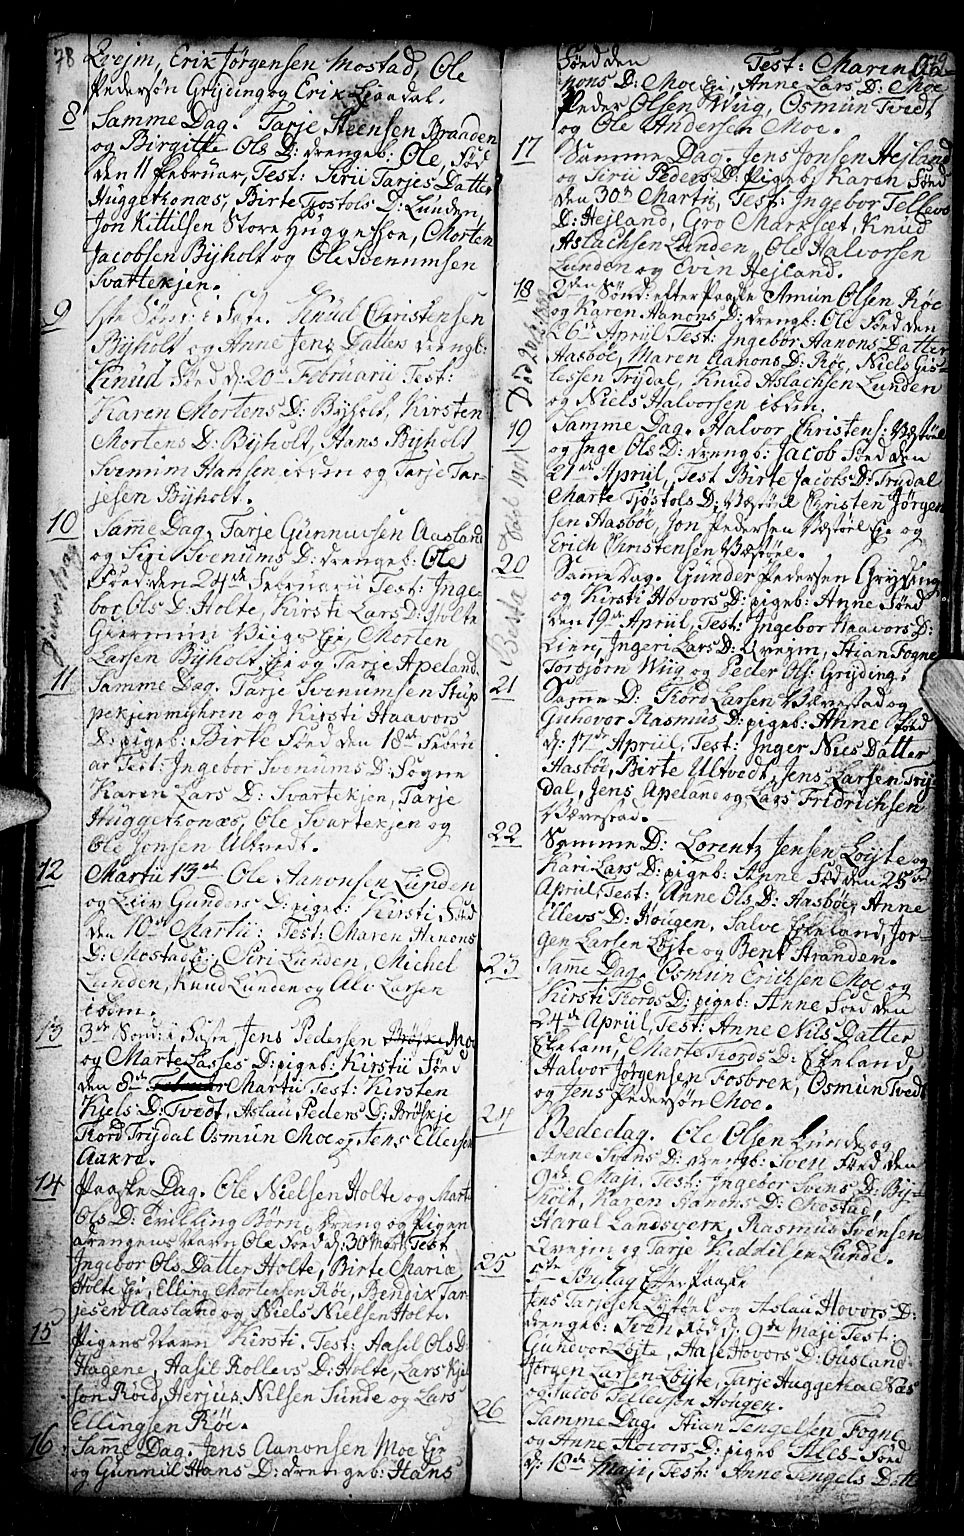 78
Qvejm, Erik Jørgensen Mostad, Ole
Pedersøn Gryding og Erik Liendal.
8
Samme Dag. Tarje Steensen Braaden
og Birgitte Ols D: drengeb: Ole, Fød
den 11 Februar, Test: Sirii Tarjes Datter
Huggetkonæs, Birte Tjostols D: Lunden,
Jon Kittilsen Store Huggetkoe, Morten
Jacobsen Bijholt og Ole Svenumsen
Svattekjen.
9
1ste Sønd: i Faste. Knud Christensen
Bijholt og Anne Jens Datters drengb:
Knud Fød d: 20de Februarii Test:
Karen Mortens D: Bijholt, Kirsten
Mortens D: Bijholt, Hans Bijholt
Svenum Hansen ibdm og Tarje Tar-
jesen Bijholt.
10
Same Dag. Tarje Gunnuvsen Aasland
og Siri Svenums D: drengeb: Ole
Fød den 24de Februarii Test: Inge-
bor Ols D: Holte, Kirsti Lars D: Holte
Giermun Viigs Eje, Morten
Larsen Bijholt Eje og Tarje Apeland
11
Samme Dag. Tarje Svenumsen Stup-
pekjenmyhren og Kirsti Haavors
D: pigeb: Birte Fød den 18de Febru
ar Test: Ingebor Svenums D: Fogne
Karen Lars D: Svartekjen, Tarje
Huggetkonæs, Ole Svartekjen og
Ole Jonsen Ultvedt.
12
Martii 13de Ole Aanonsen Lunden
og Liv Gunders D: pigeb: Kirsti Fød
den 10de Martii: Test: Maren Anons
D: Mostade, Siri Lunden, Michel
Lunden, Knud Lunden og Alv Larsen
ibdm.
13
3de Sønd: i Faste, Jens Pedersen Moe
og Marte Lasses D: pigeb: Kirstii Fød
den 8de Martii Test: Kirsten
Niels D: Tvedt, Aslau Peders D: Brøskje
Tord Trydal Osmun Moe og Jens Ellevsen
Aakre.
14
Paaske Dag. Ole Nielsen Holte og Marte
Ols D: Tvilling Børn, Dreng og Pigen
drengens Navn Ole Fød d: 30 Marti Test
Ingebor Ols Datter Holte, Birte Mariæ
Holte Eje, Elling Mortensen Røe, Bendix Tar-
jesen Aasland og Niels Nielsen Holte.
15
Pigens Navn Kirsti. Test: Aasil Ols D:
Hagene, Aasil Rollevs D: Holte, Lars Kjil
son Roed, Herjus Nilsen Sunde og Lars
Ellingsen Røe.
16
Same Dag. Jens Aanonsen Moe Eje
og Gunnil Hans D: drengeb: Hans
Fød den Test: Maren Aa-
nons D: Moe Eje, Anne Lars D: Moe
Peder Olsen Wiig, Osmun Tvedt
og Ole Andersen Moe.
17
Samme Dag. Jens Jonsen Hejland
og Sirii Peders D: pigeb: Karen Fød
den 30te Martii, Test: Ingebor Tellevs
D: Hejland, Gro Marksæt, Knud
Aslachsen Lunden, Ole Halvorsen
Lunden og Evin Hejland.
18
2den Sønd: efter Paaske Amun Olsen Røe
og Karen Aanons D: drengb: Ole Fød den
26de April Test: Ingebor Aanons Datter
Aasboe, Maren Aanons D: Røe, Niels Gis-
lessen Trydal, Knud Aslachsen Lunden
og Niels Halvorsen ibdm.
19
Samme Dag. Halvor Christens: Væstøl
og Inge Ols D: drengb: Jacob Fød den
21de April, Test Birte Jacobs D: Trydal
Marte Tjøstols D: Væstøl Christen Jørgen
sen Aasboe, Jon Pedersen Væstøl Eje og
Erich Christensen Væstøl.
20
Samme Dag. Gunder Pedersen Gryting
og Kirsti Hovors D: pigeb: Anne Fød
den 19de April, Test: Ingebor Haavors D:
Lien, Ingeri Lars D: Qvejm, Aian Fogne
Torbjørn Wiig og Peder Ols: Gryding.
21
Same D: Tord Larsen Væretad og
Guhovor Rasmus D: pigeb: Anne Fød
d: 17de April, Test: Inger Nies Datter
Aasbøe, Birte Ultvedt, Jens Larsen Try
dal, Jens Apeland og Lars Fridrichsen
Værestad.
22
Samme D: Lorentz Jensen Løyte og
Kari Lars D: pigeb: Anne Fød den 25de
April, Test: Anne Ols D: Aasboe, Anne
Ellevs D: Hougen, Salve Egeland, Jor-
gen Larsen Løyte og Bent Stranden.
23
Same Dag. Osmun Erichsen Moe og
Kirsti Tords D: pigeb: Anne Fød den
24de April, Test: Anne Nils Datter
Egeland, Marte Tords D: Egeland,
Halvor Jorgensen Fosbrek, Osmun Tvedt
og Jens Pedersøn Moe.
24
Bededag. Ole Olsen Lunde og
Anne Svens D: drengb: Sven Fød den
9de Maji, Test: Ingebor Svens D: Bij-
holt, Karen Aanons D: Mostad,
Haral Landsverk, Rasmus Svensen
Qvejm og Tarje Kiddilsen Lunde.
25
5te Søndag Efter Paaske
Jens Tarjesen Løstøel og Aslau Hovors D:
drengeb: Iven Fød d: 9de Maji Test:
Gunevor Løyte, Aase Hovors D: Ousland
Jørgen Larsen Løyte, Tarje Huggetkoe Næs
og Jacob Tellefsen Hougen.
26
Samme Dag. Aian Tengelsen Fogne
og Anne Hovors D: pigeb Fød
d: 18de Maji, Test: Anne Tengels Datt